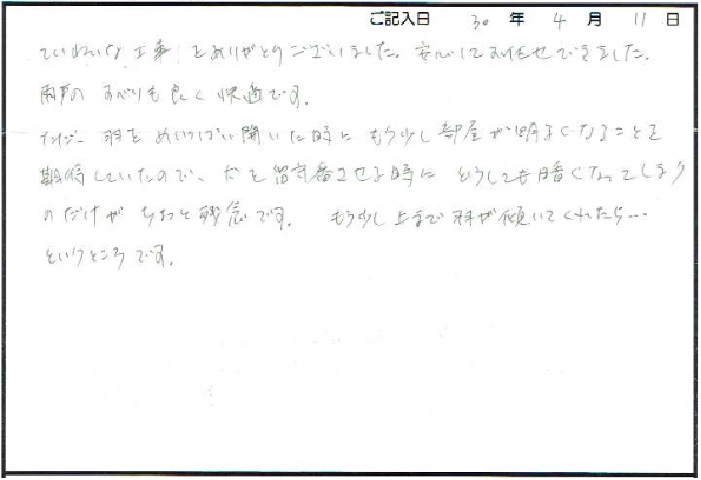 ご記入日 30 年 4 月 11 日
ていねいな工事、ありがとうございました。安心しておまかせできました。
雨戸のすべりも良く快適です。
羽をめいっぱい開いた時にもう少し部屋が明るくなることを
期待していたので、犬を留守番させる時にどうしても暗くなってしまう
のだけがちょっと残念です。 もう少し上まで羽が傾いてくれたら…
というところです。